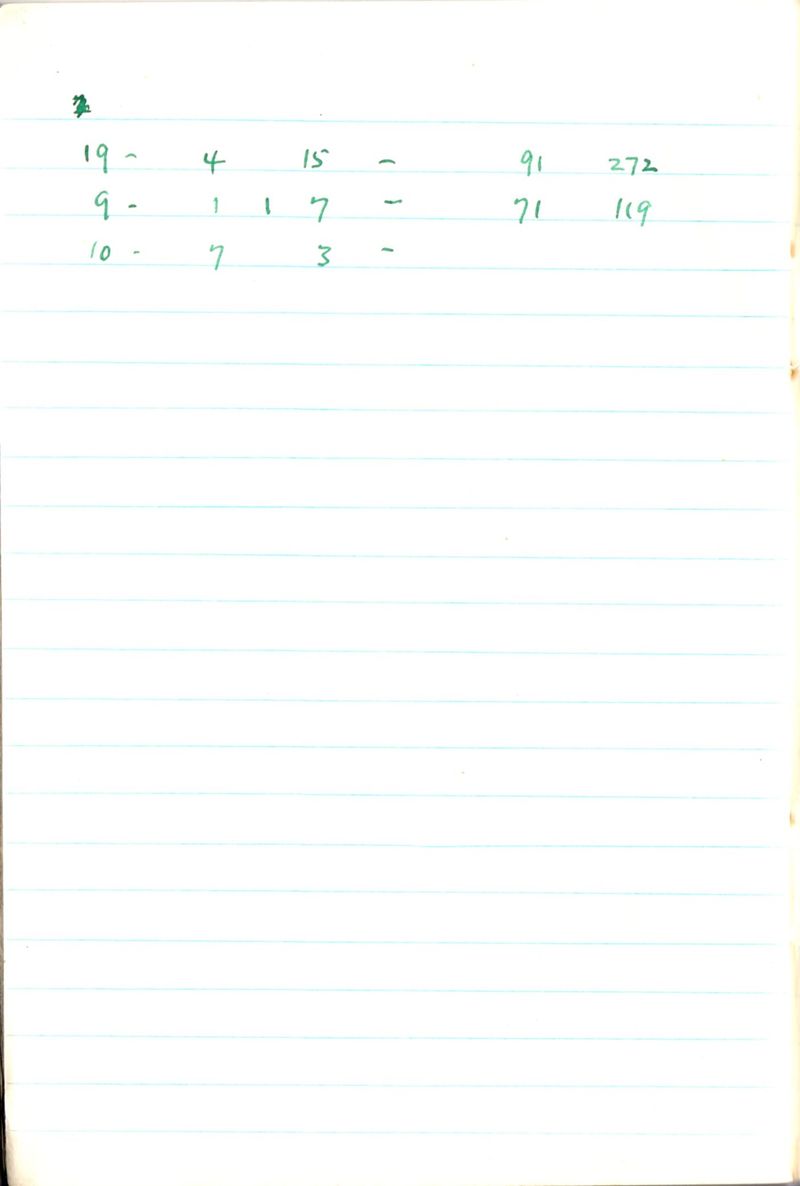 19 - 4 15 - 91 272
9 - 1 1 7 - 71 119
10 - 7 3 -